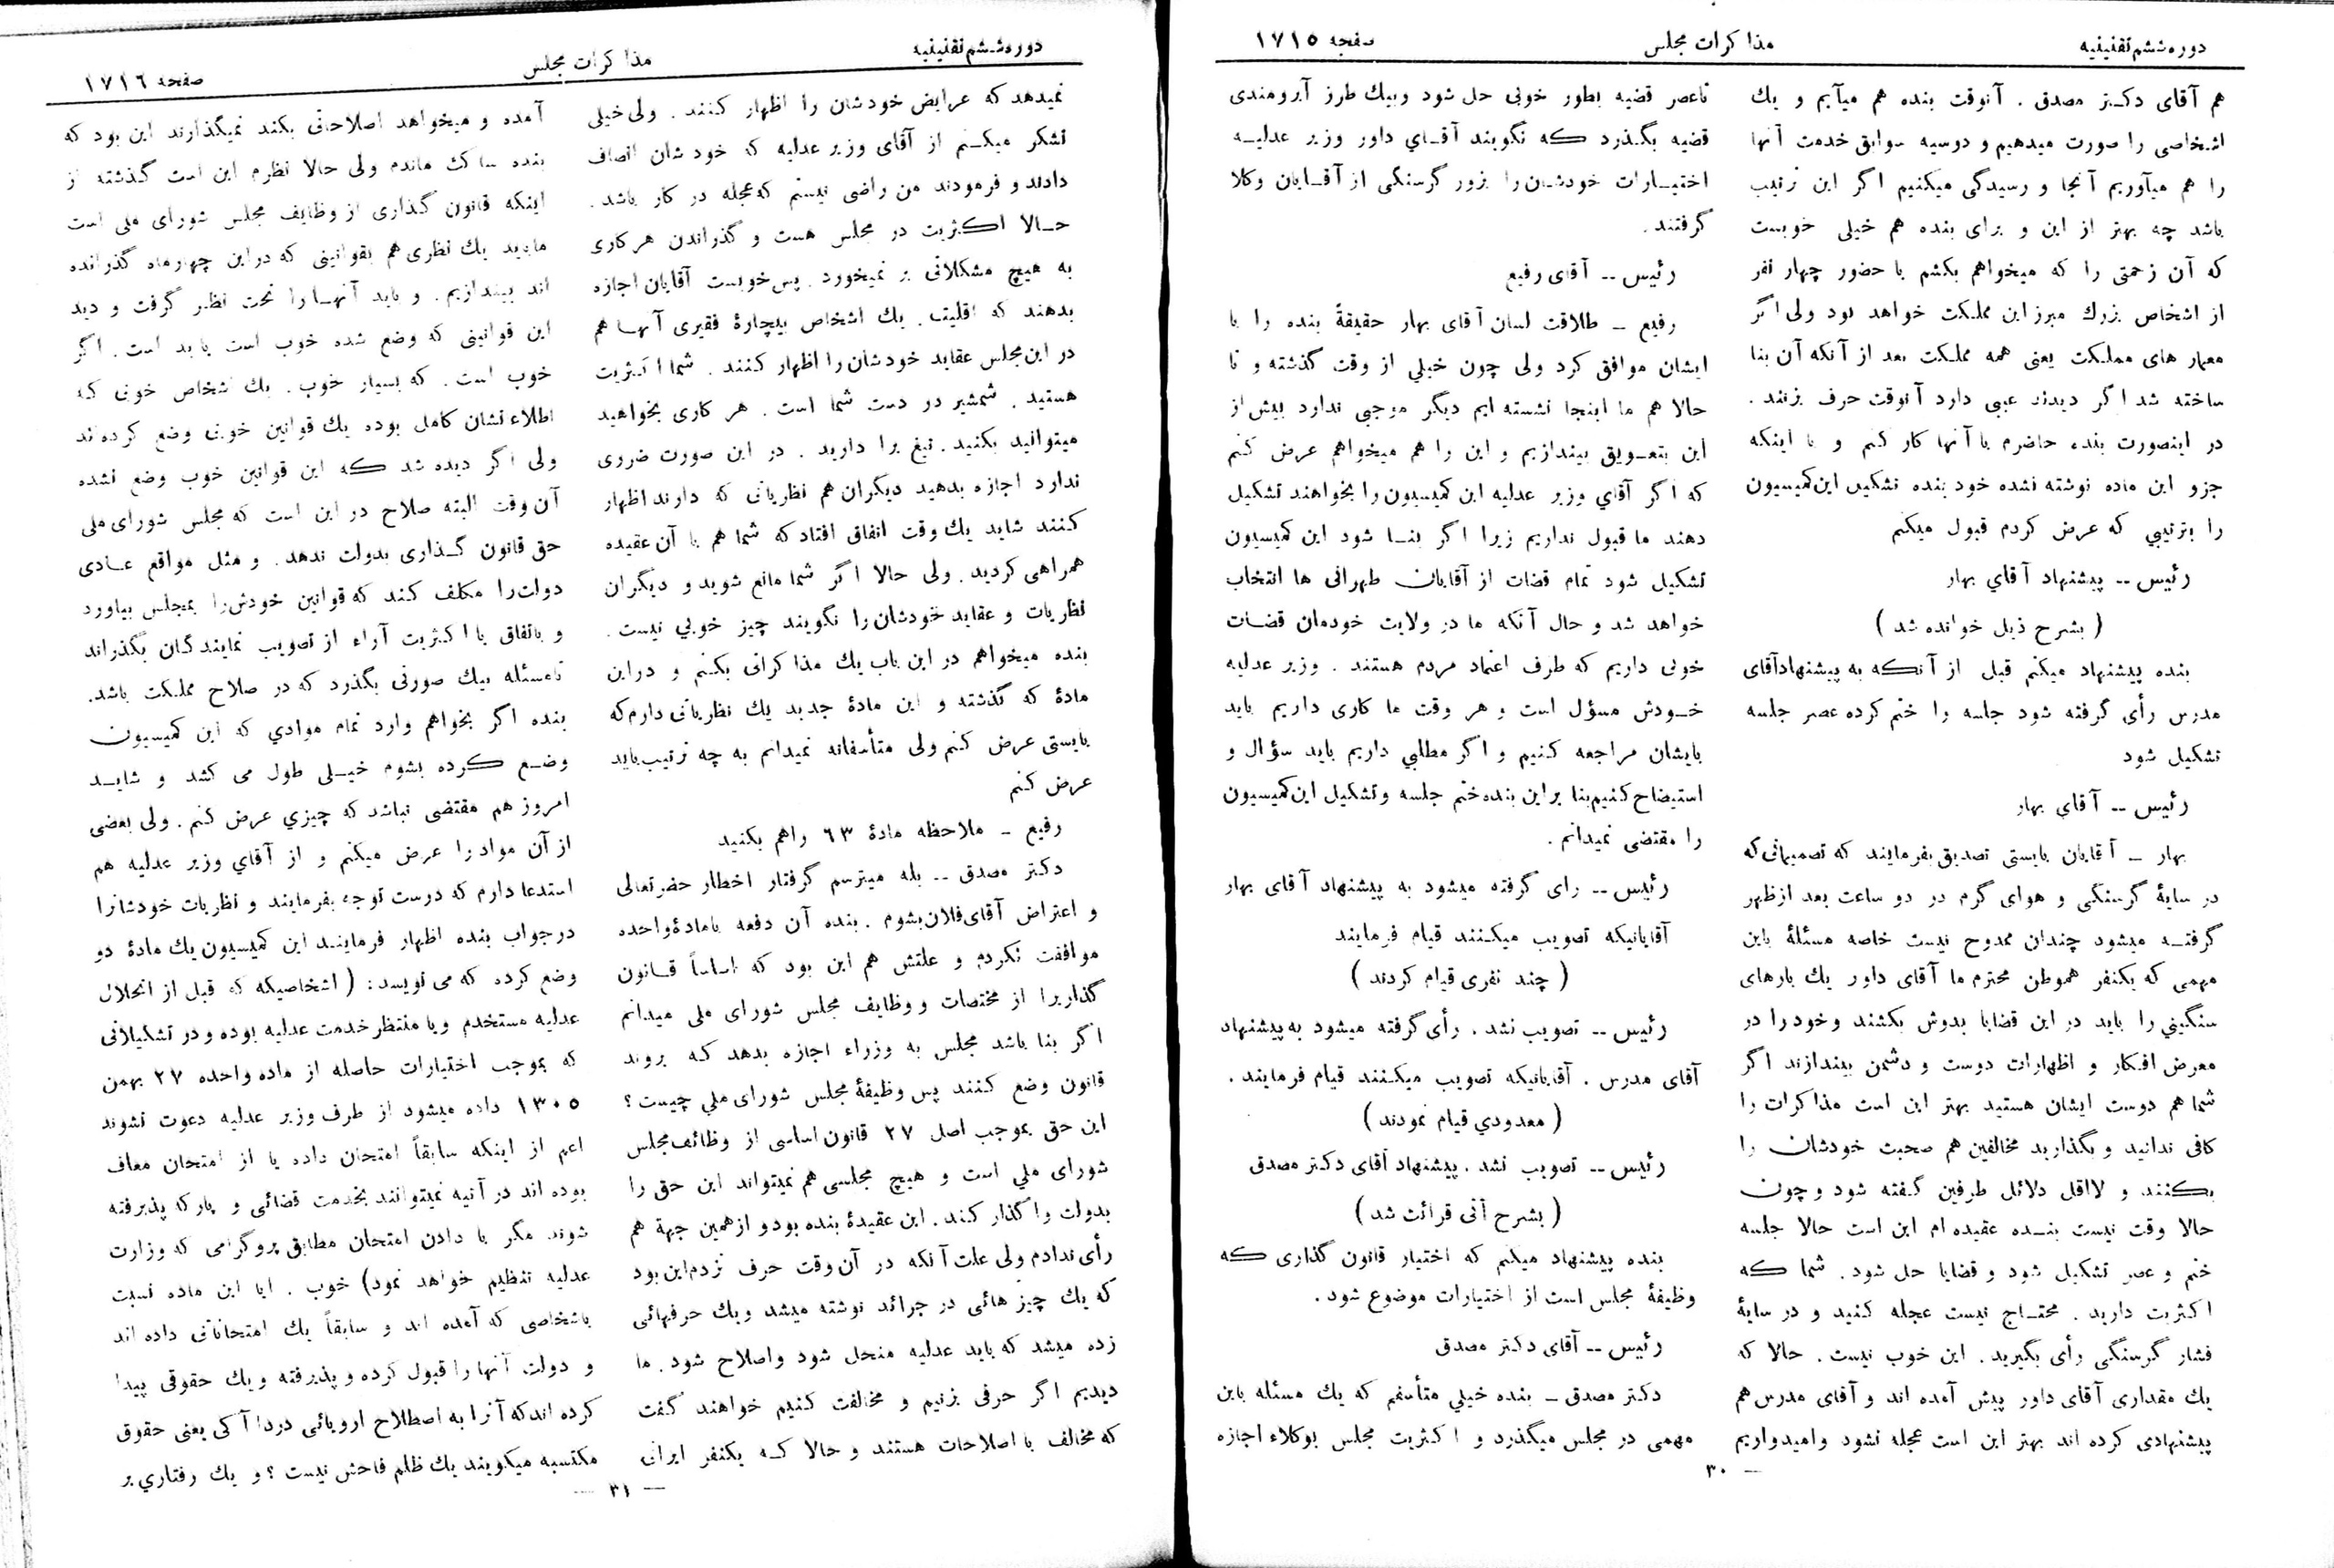 دوره ششم تقنینیه
مذاکرات مجلس
صفحه ۱۷۱۵
هم آقای دکتر مصدق . آنوقت بنده هم میآیم و یك
اشخاصی را صورت میدهیم و دوسیه سوابق خدمت آنها
را هم میآوریم آنجا و رسیدگی میکنیم اگر این ترتیب
باشد چه بهتر از این و برای بنده هم خیلی خوبست
که آن زحمتی را که میخواهم بکشم با حضور چهار نفر
از اشخاص بزرك مبرز این مملکت خواهد بود ولی اگر
معمار های مملکت یعنی همه مملکت بعد از آنکه آن بنا
ساخته شد اگر دیدند عیبی دارد آنوقت حرف بزنند .
در اینصورت بنده حاضرم با آنها کار کنم و با اینکه
جزو این ماده نوشته نشده خود بنده تشکیل این کمیسیون
را بترتیبی که عرض کردم قبول میکنم
رئیس -- پیشنهاد آقای بهار
( بشرح ذیل خوانده شد )
بنده پیشنهاد میکنم قبل از آنکه به پیشنهاد آقای
مدرس رأی گرفته شود جلسه را ختم کرده عصر جلسه
تشکیل شود
رئیس -- آقای بهار
بهار - آقایان بایستی تصدیق بفرمایند که تصمیماتی که
در سایهٔ گرسنگی و هوای گرم در دو ساعت بعد از ظهر
گرفته میشود چندان ممدوح نیست خاصه مسئلهٔ باین
مهمی که یکنفر هموطن محترم ما آقای داور یك بارهای
سنگینی را باید در این قضایا بدوش بکشند و خود را در
معرض افکار و اظهارات دوست و دشمن بیندازند اگر
شما هم دوست ایشان هستید بهتر این است مذاکرات را
کافی ندانید و بگذارید مخالفین هم صحبت خودشان را
بکنند و لااقل دلائل طرفین گفته شود و چون
حالا وقت نیست بنده عقیده ام این است حالا جلسه
ختم و عصر تشکیل شود و قضایا حل شود . شما که
اکثریت دارید . محتاج نیست عجله کنید و در سایهٔ
فشار گرسنگی رأی بگیرید . این خوب نیست . حالا که
یك مقداری آقای داور پیش آمده اند و آقای مدرس هم
پیشنهادی کرده اند بهتر این است عجله نشود و امیدواریم
تا عصر قضیه بطور خوبی حل شود و بیك طرز آبرومندی
قضیه بگذرد که نگویند آقای داور وزیر عدلیه
اختیارات خودشان را بزور گرسنگی از آقایان وکلا
گرفتند .
رئیس -- آقای رفیع
رفیع - طلاقت لسان آقای بهار حقیقةً بنده را با
ایشان موافق کرد ولی چون خیلی از وقت گذشته و تا
حالا هم ما اینجا نشسته ایم دیگر موجبی ندارد بیش از
این بتعویق بیندازیم و این را هم میخواهم عرض کنم
که اگر آقای وزیر عدلیه این کمیسیون را بخواهند تشکیل
دهند ما قبول نداریم زیرا اگر بنا شود این کمیسیون
تشکیل شود تمام قضات از آقایان طهرانی ها انتخاب
خواهد شد و حال آنکه ما در ولایت خودمان قضات
خوبی داریم که طرف اعتماد مردم هستند . وزیر عدلیه
خودش مسؤل است و هر وقت ما کاری داریم باید
بایشان مراجعه کنیم و اگر مطلبی داریم باید سؤال و
استیضاح کنیم بنا براین بنده ختم جلسه و تشکیل این کمیسیون
را مقتضی نمیدانم .
رئیس -- رای گرفته میشود به پیشنهاد آقای بهار
آقایانیکه تصویب میکنند قیام فرمایند
( چند نفری قیام کردند )
رئیس -- تصویب نشد . رأی گرفته میشود به پیشنهاد
آقای مدرس . آقایانیکه تصویب میکنند قیام فرمایند .
( معدودی قیام نمودند )
رئیس -- تصویب نشد . پیشنهاد آقای دکتر مصدق
( بشرح آتی قرائت شد )
بنده پیشنهاد میکنم که اختیار قانون گذاری که
وظیفهٔ مجلس است از اختیارات موضوع شود .
رئیس -- آقای دکتر مصدق
دکتر مصدق - بنده خیلی متأسفم که یك مسئله باین
مهمی در مجلس میگذرد و اکثریت مجلس بوکلاء اجازه
— ۳۰
دوره ششم تقنینیه
مذاکرات مجلس
صفحه ۱۷۱۶
نمیدهد که عرایض خودشان را اظهار کنند . ولی خیلی
تشکر میکنم از آقای وزیر عدلیه که خودشان انصاف
دادند و فرمودند من راضی نیستم که عجله در کار باشد .
حالا اکثریت در مجلس هست و گذراندن هر کاری
به هیچ مشکلاتی بر نمیخورد . پس خوبست آقایان اجازه
بدهند که اقلیت . یك اشخاص بیچارهٔ فقیری آنها هم
در این مجلس عقاید خودشان را اظهار کنند . شما اکثریت
هستید . شمشیر در دست شما است . هر کاری بخواهید
میتوانید بکنید . تیغ برا دارید . در این صورت ضرری
ندارد اجازه بدهید دیگران هم نظریاتی که دارند اظهار
کنند شاید یك وقت اتفاق افتاد که شما هم با آن عقیده
همراهی کردید . ولی حالا اگر شما مانع شوید و دیگران
نظریات و عقاید خودشان را نگویند چیز خوبی نیست .
بنده میخواهم در این باب یك مذاکراتی بکنم و در این
مادهٔ که گذشته و این مادهٔ جدید یك نظریاتی دارم که
بایستی عرض کنم ولی متأسفانه نمیدانم به چه ترتیب باید
عرض کنم
رفیع - ملاحظه مادهٔ ۶۳ را هم بکنید
دکتر مصدق -- بله میترسم گرفتار اخطار حضرتعالی
و اعتراض آقای فلان بشوم . بنده آن دفعه با مادهٔ واحده
موافقت نکردم و علتش هم این بود که اساساً قانون
گذاریرا از مختصات و وظایف مجلس شورای ملی میدانم
اگر بنا باشد مجلس به وزراء اجازه بدهد که بروند
قانون وضع کنند پس وظیفهٔ مجلس شورای ملی چیست ؟
این حق بموجب اصل ۲۷ قانون اساسی از وظائف مجلس
شورای ملی است و هیچ مجلسی هم نمیتواند این حق را
بدولت واگذار کند . این عقیدهٔ بنده بود و از همین جهة هم
رأی ندادم ولی علت آنکه در آن وقت حرف نزدم این بود
که یك چیز هائی در جرائد نوشته میشد و یك حرفهائی
زده میشد که باید عدلیه منحل شود و اصلاح شود . ما
دیدیم اگر حرفی بزنیم و مخالفت کنیم خواهند گفت
که مخالف با اصلاحات هستند و حالا که یکنفر ایرانی
آمده و میخواهد اصلاحاتی بکند نمیگذارند این بود که
بنده ساکت ماندم ولی حالا نظرم این است گذشته از
اینکه قانون گذاری از وظایف مجلس شورای ملی است
ما باید یك نظری هم بقوانینی که در این چهارماه گذرانده
اند بیندازیم . و باید آنها را تحت نظر گرفت و دید
این قوانینی که وضع شده خوب است یا بد است . اگر
خوب است . که بسیار خوب . یك اشخاص خوبی که
اطلاعاتشان کامل بوده یك قوانین خوبی وضع کرده اند
ولی اگر دیده شد که این قوانین خوب وضع نشده
آن وقت البته صلاح در این است که مجلس شورای ملی
حق قانون گذاری بدولت ندهد . و مثل مواقع عادی
دولت را مکلف کند که قوانین خودش را بمجلس بیاورد
و باتفاق یا اکثریت آراء از تصویب نمایندگان بگذراند
تا مسئله بیك صورتی بگذرد که در صلاح مملکت باشد .
بنده اگر بخواهم وارد تمام موادی که این کمیسیون
وضع کرده بشوم خیلی طول می کشد و شاید
امروز هم مقتضی نباشد که چیزی عرض کنم . ولی بعضی
از آن مواد را عرض میکنم و از آقای وزیر عدلیه هم
استدعا دارم که درست توجه بفرمایند و نظریات خودشانرا
در جواب بنده اظهار فرمایند این کمیسیون یك مادهٔ دو
وضع کرده که می نویسد : ( اشخاصیکه که قبل از انحلال
عدلیه مستخدم و یا منتظر خدمت عدلیه بوده و در تشکیلاتی
که بموجب اختیارات حاصله از ماده واحده ۲۷ بهمن
۱۳۰۵ داده میشود از طرف وزیر عدلیه دعوت نشوند
اعم از اینکه سابقاً امتحان داده یا از امتحان معاف
بوده اند در آتیه نمیتوانند بخدمت قضائی و پارکه پذیرفته
شوند مگر با دادن امتحان مطابق پروگرامی که وزارت
عدلیه تنظیم خواهد نمود) خوب . ایا این ماده نسبت
باشخاصی که آمده اند و سابقاً یك امتحاناتی داده اند
و دولت آنها را قبول کرده و پذیرفته و یك حقوقی پیدا
کرده اند که آنرا به اصطلاح اروپائی دردا آکی یعنی حقوق
مکتسبه میگویند یك ظلم فاحش نیست ؟ و یك رفتاری بر
— ۳۱ —